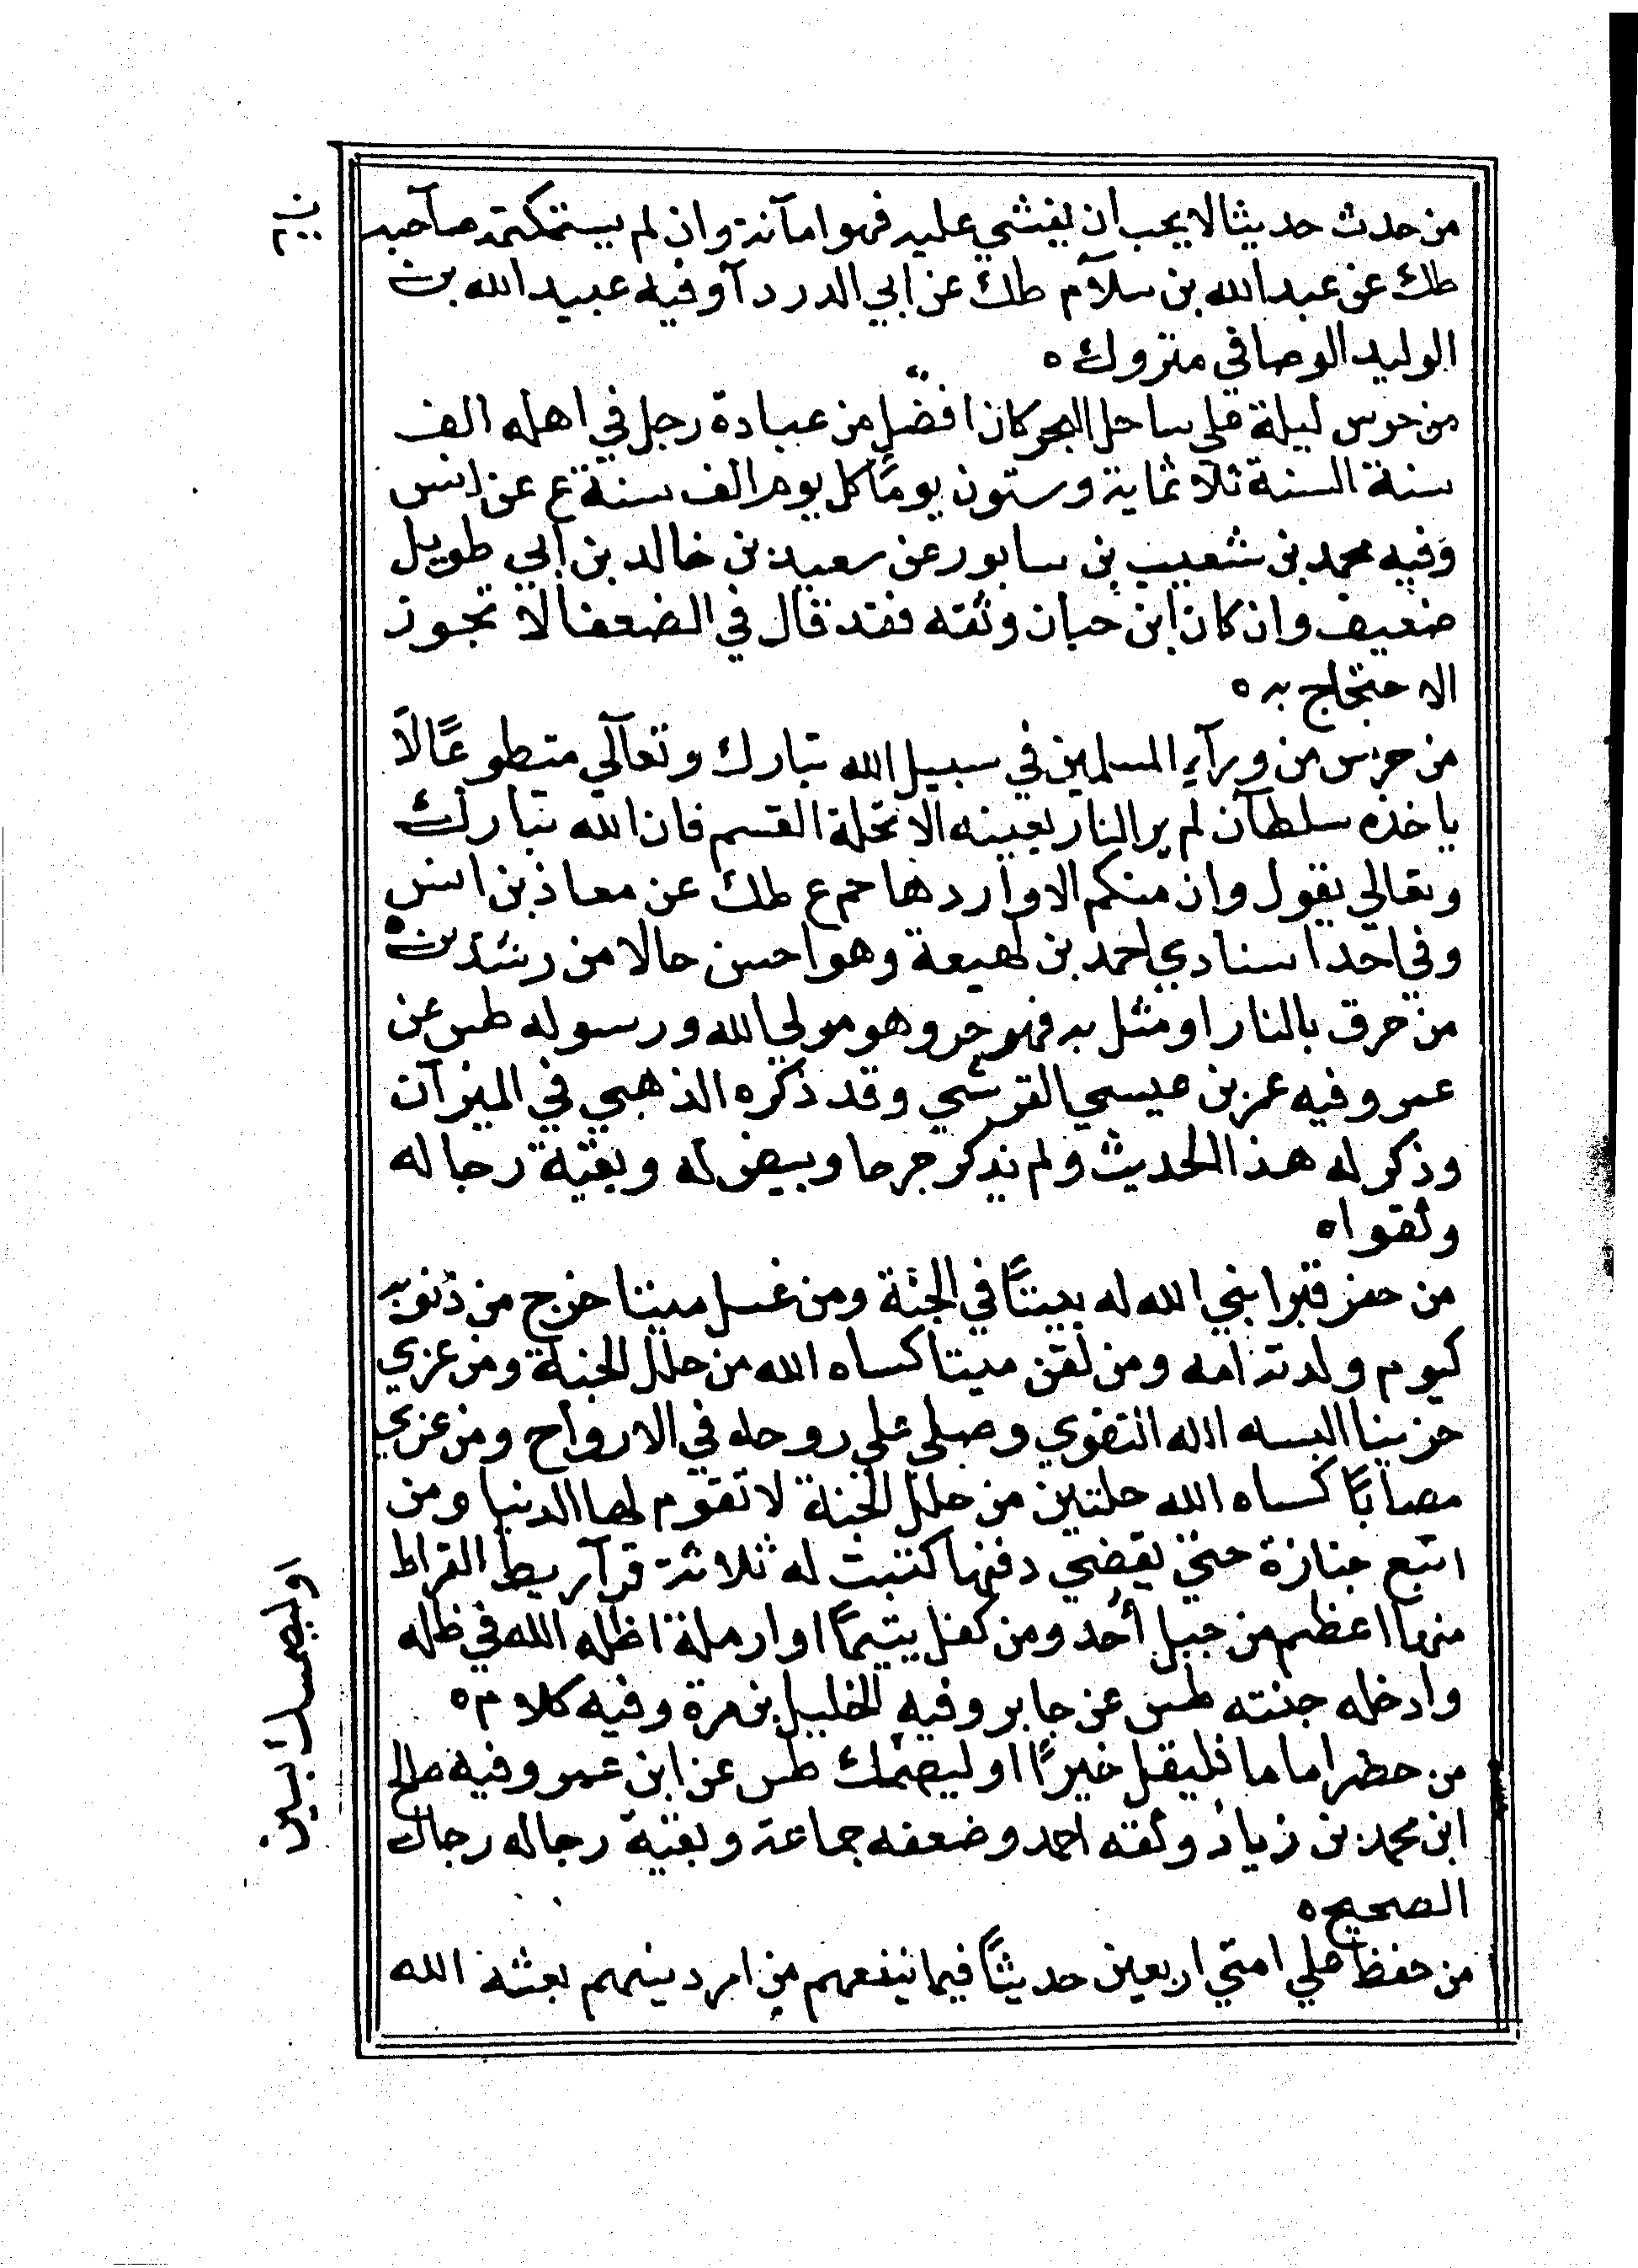 من حدث حديثا لا يحب ان يفشي عليه فهو امآنة وان لم يستكتمه صآحبه
طك عن عبد الله بن سلآم طك عن ابي الدردآ وفيه عبيد الله بن
الوليد الوصافي متروك ه
من حرس ليلة علي ساحل البحر كان افضل من عبادة رجل في اهله الف
سنة السنة ثلاثماية وستون يومًا كل يوم الف سنة ع عن انس
وفيه محمد بن شعيب بن سابور عن سعيد بن خالد بن ابي طويل
ضعيف وان كان ابن حبان وثقه فقد قال في الضعفا لا تجوز
الاحتجاج به ه
من حرس من ورآء المسلمين في سبيل الله تبارك وتعآلي متطوعًا لا
ياخذه سلطآن لم ير النار بعينه الا تحلة القسم فان الله تبارك
وتعالي يقول وان منكم الا واردها حم ع طك عن معاذ بن انس
وفي احد اسنادي احمد بن لهيعة وهو احسن حالا من رشد بن ه
من حرق بالنار او مثل به فهو حر وهو مولي الله ورسوله طس عن
عمر وفيه عمر بن عيسي القرشي وقد ذكره الذهبي في الميزآن
وذكر له هذا الحديث ولم يذكر جرحا وبيض له وبقية رجاله
وثقوا ه
من حفر قبرا بني الله له بيتًا في الجنة ومن غسل ميتا خرج من ذنوبه
كيوم ولدته امه ومن لقن ميتا كساه الله من حلل الجنة ومن عزي
حزينا البسه الله التقوي وصلي علي روحه في الارواح ومن عزي
مصابًا كساه الله حلتين من حلل الجنة لا تقوم لها الدنيا ومن
اتبع جنازة حتي يقضي دفنها كتبت له ثلاثة قرآريط القراط
منها اعظم من جبل أحد ومن كفل يتيمًا او ارملة اظله الله في ظله
وادخله جنته طس عن جابر وفيه الخليل بن مرة وفيه كلام ه
من حظر اماما فليقل خيرًا او ليصمك طس عن ابن عمر وفيه صالح
ابن محمد بن زياد وثقه احمد وضعفه جماعة وبقية رجاله رجال
الصحيح ه
من حفظ علي امتي اربعين حديثًا فيما ينفعهم من امر دينهم بعثه الله